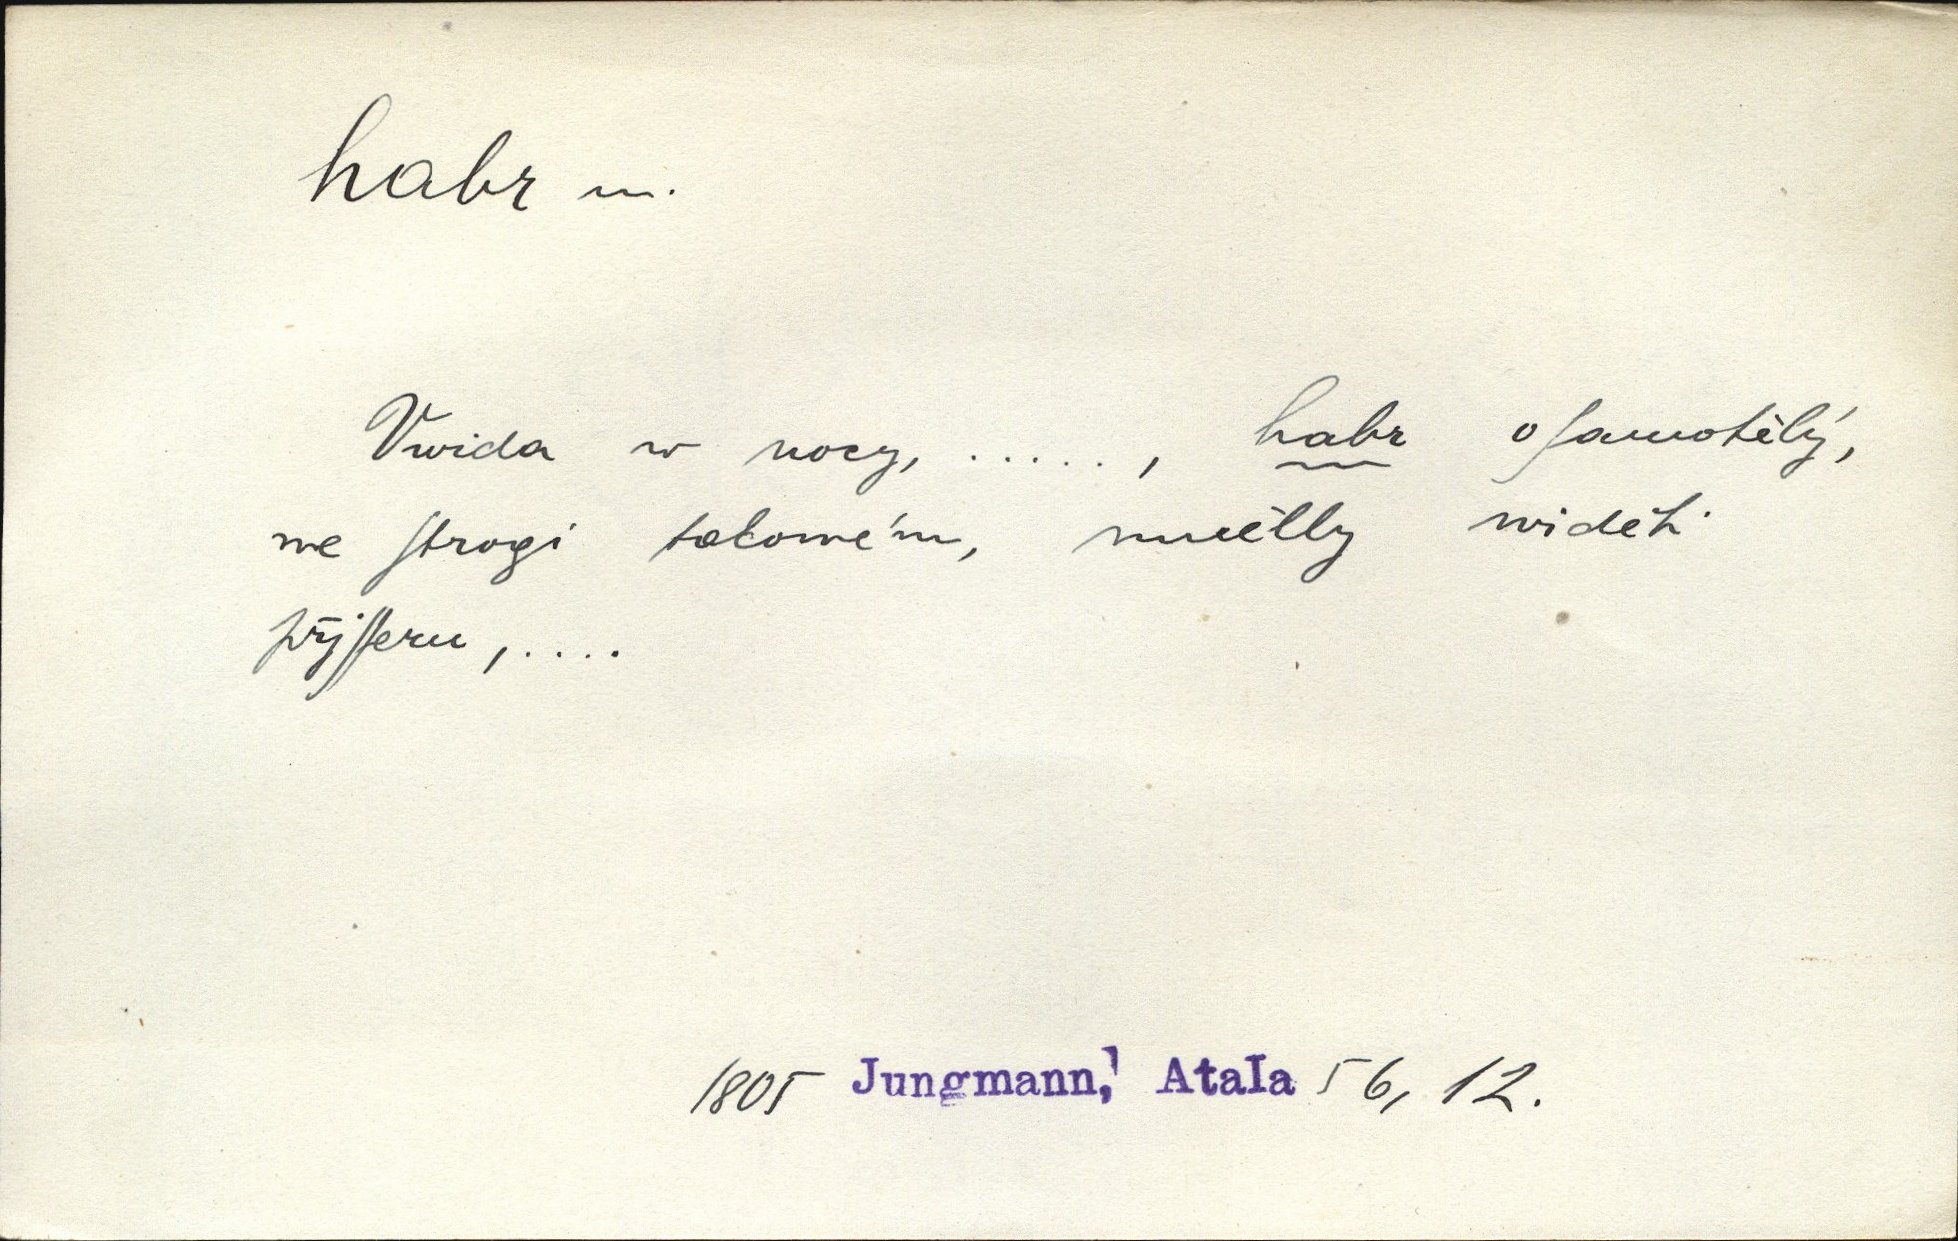 habr m.
Vwida w nocy, ....., habr oſamotělý,
we ſtrogi takowém, mnělby widěti
přjſſeru, ....
1805 Jungmann, Atala 56, 12.